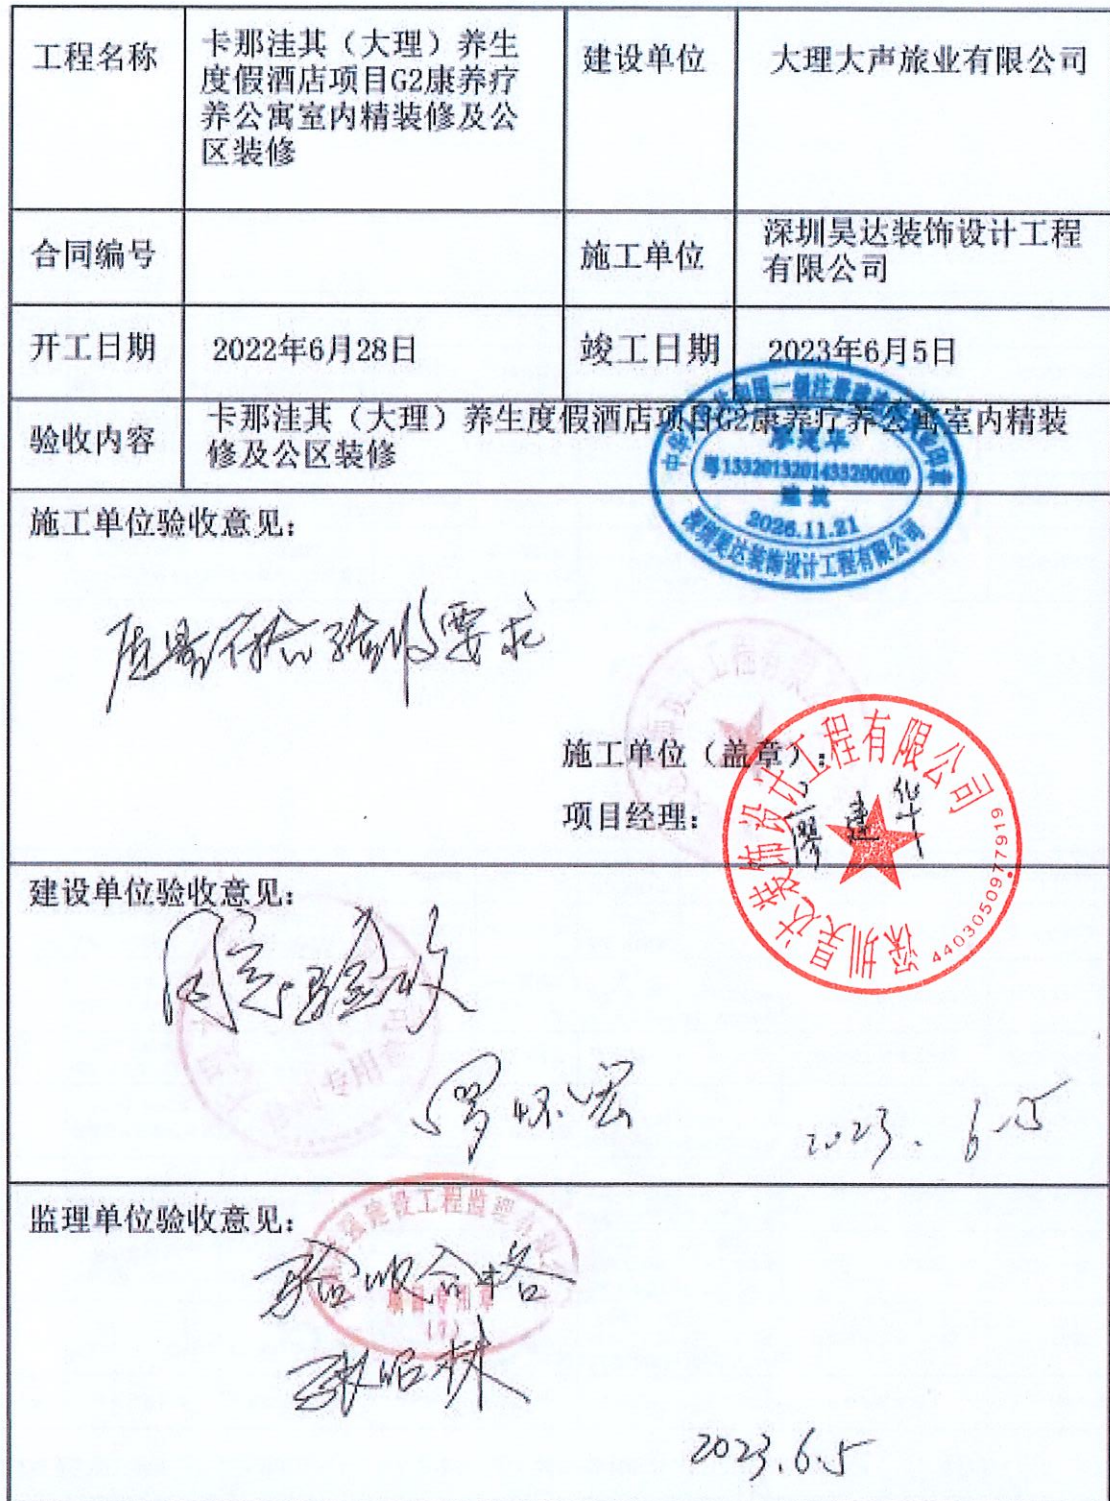 工程名称
卡那洼其（大理）养生
度假酒店项目G2康养疗
养公寓室内精装修及公
区装修
建设单位
大理大声旅业有限公司
合同编号
施工单位
深圳昊达装饰设计工程
有限公司
开工日期
2022年6月28日
竣工日期
2023年6月5日
验收内容
卡那洼其（大理）养生度假酒店项目G2康养疗养公寓室内精装
修及公区装修
粤1332013201433200(00)
建筑
2026.11.21
深圳昊达装饰设计工程有限公司
施工单位验收意见：
质量符合验收要求
施工单位（盖章）：
项目经理：
廖建华
深圳昊达装饰设计工程有限公司
4403050977619
建设单位验收意见：
同意验收
罗怀宏
2023.6.5
监理单位验收意见：
建设工程监理
项目专用章
验收合格
2023.6.5